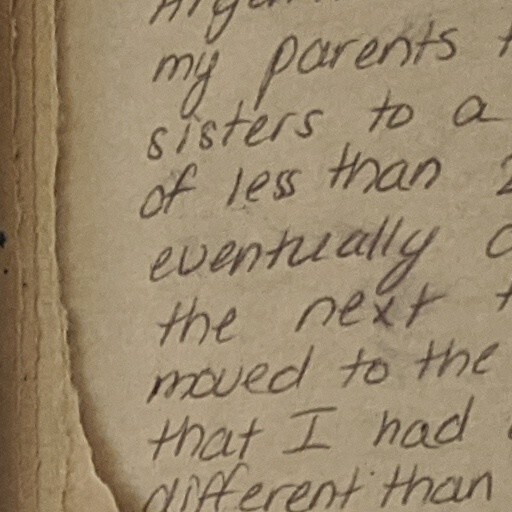 my parents
sisters to a
of less than
eventually
the next
moved to the
that I had
different than